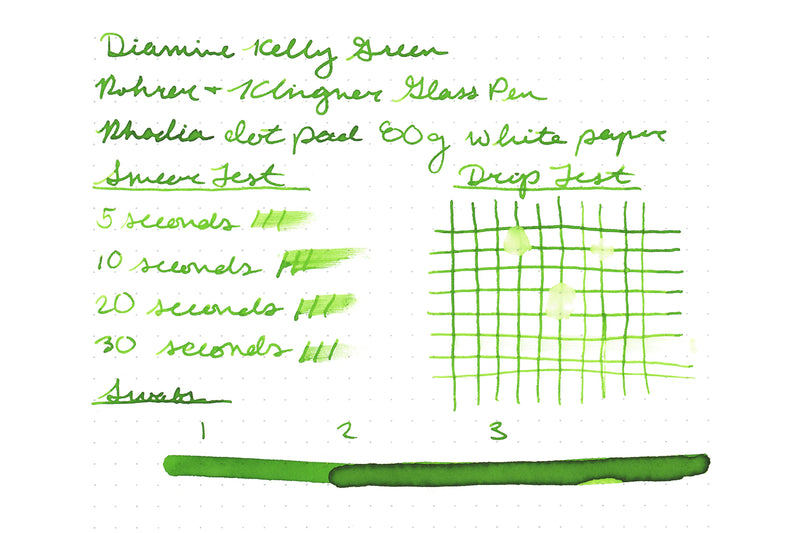 Diamine Kelly Green
Rohrer + Klingner Glass Pen
Rhodia dot pad 80g white paper
Smear Test
5 seconds
10 seconds
20 seconds
30 seconds
Drip Test
Swabs
1 2 3